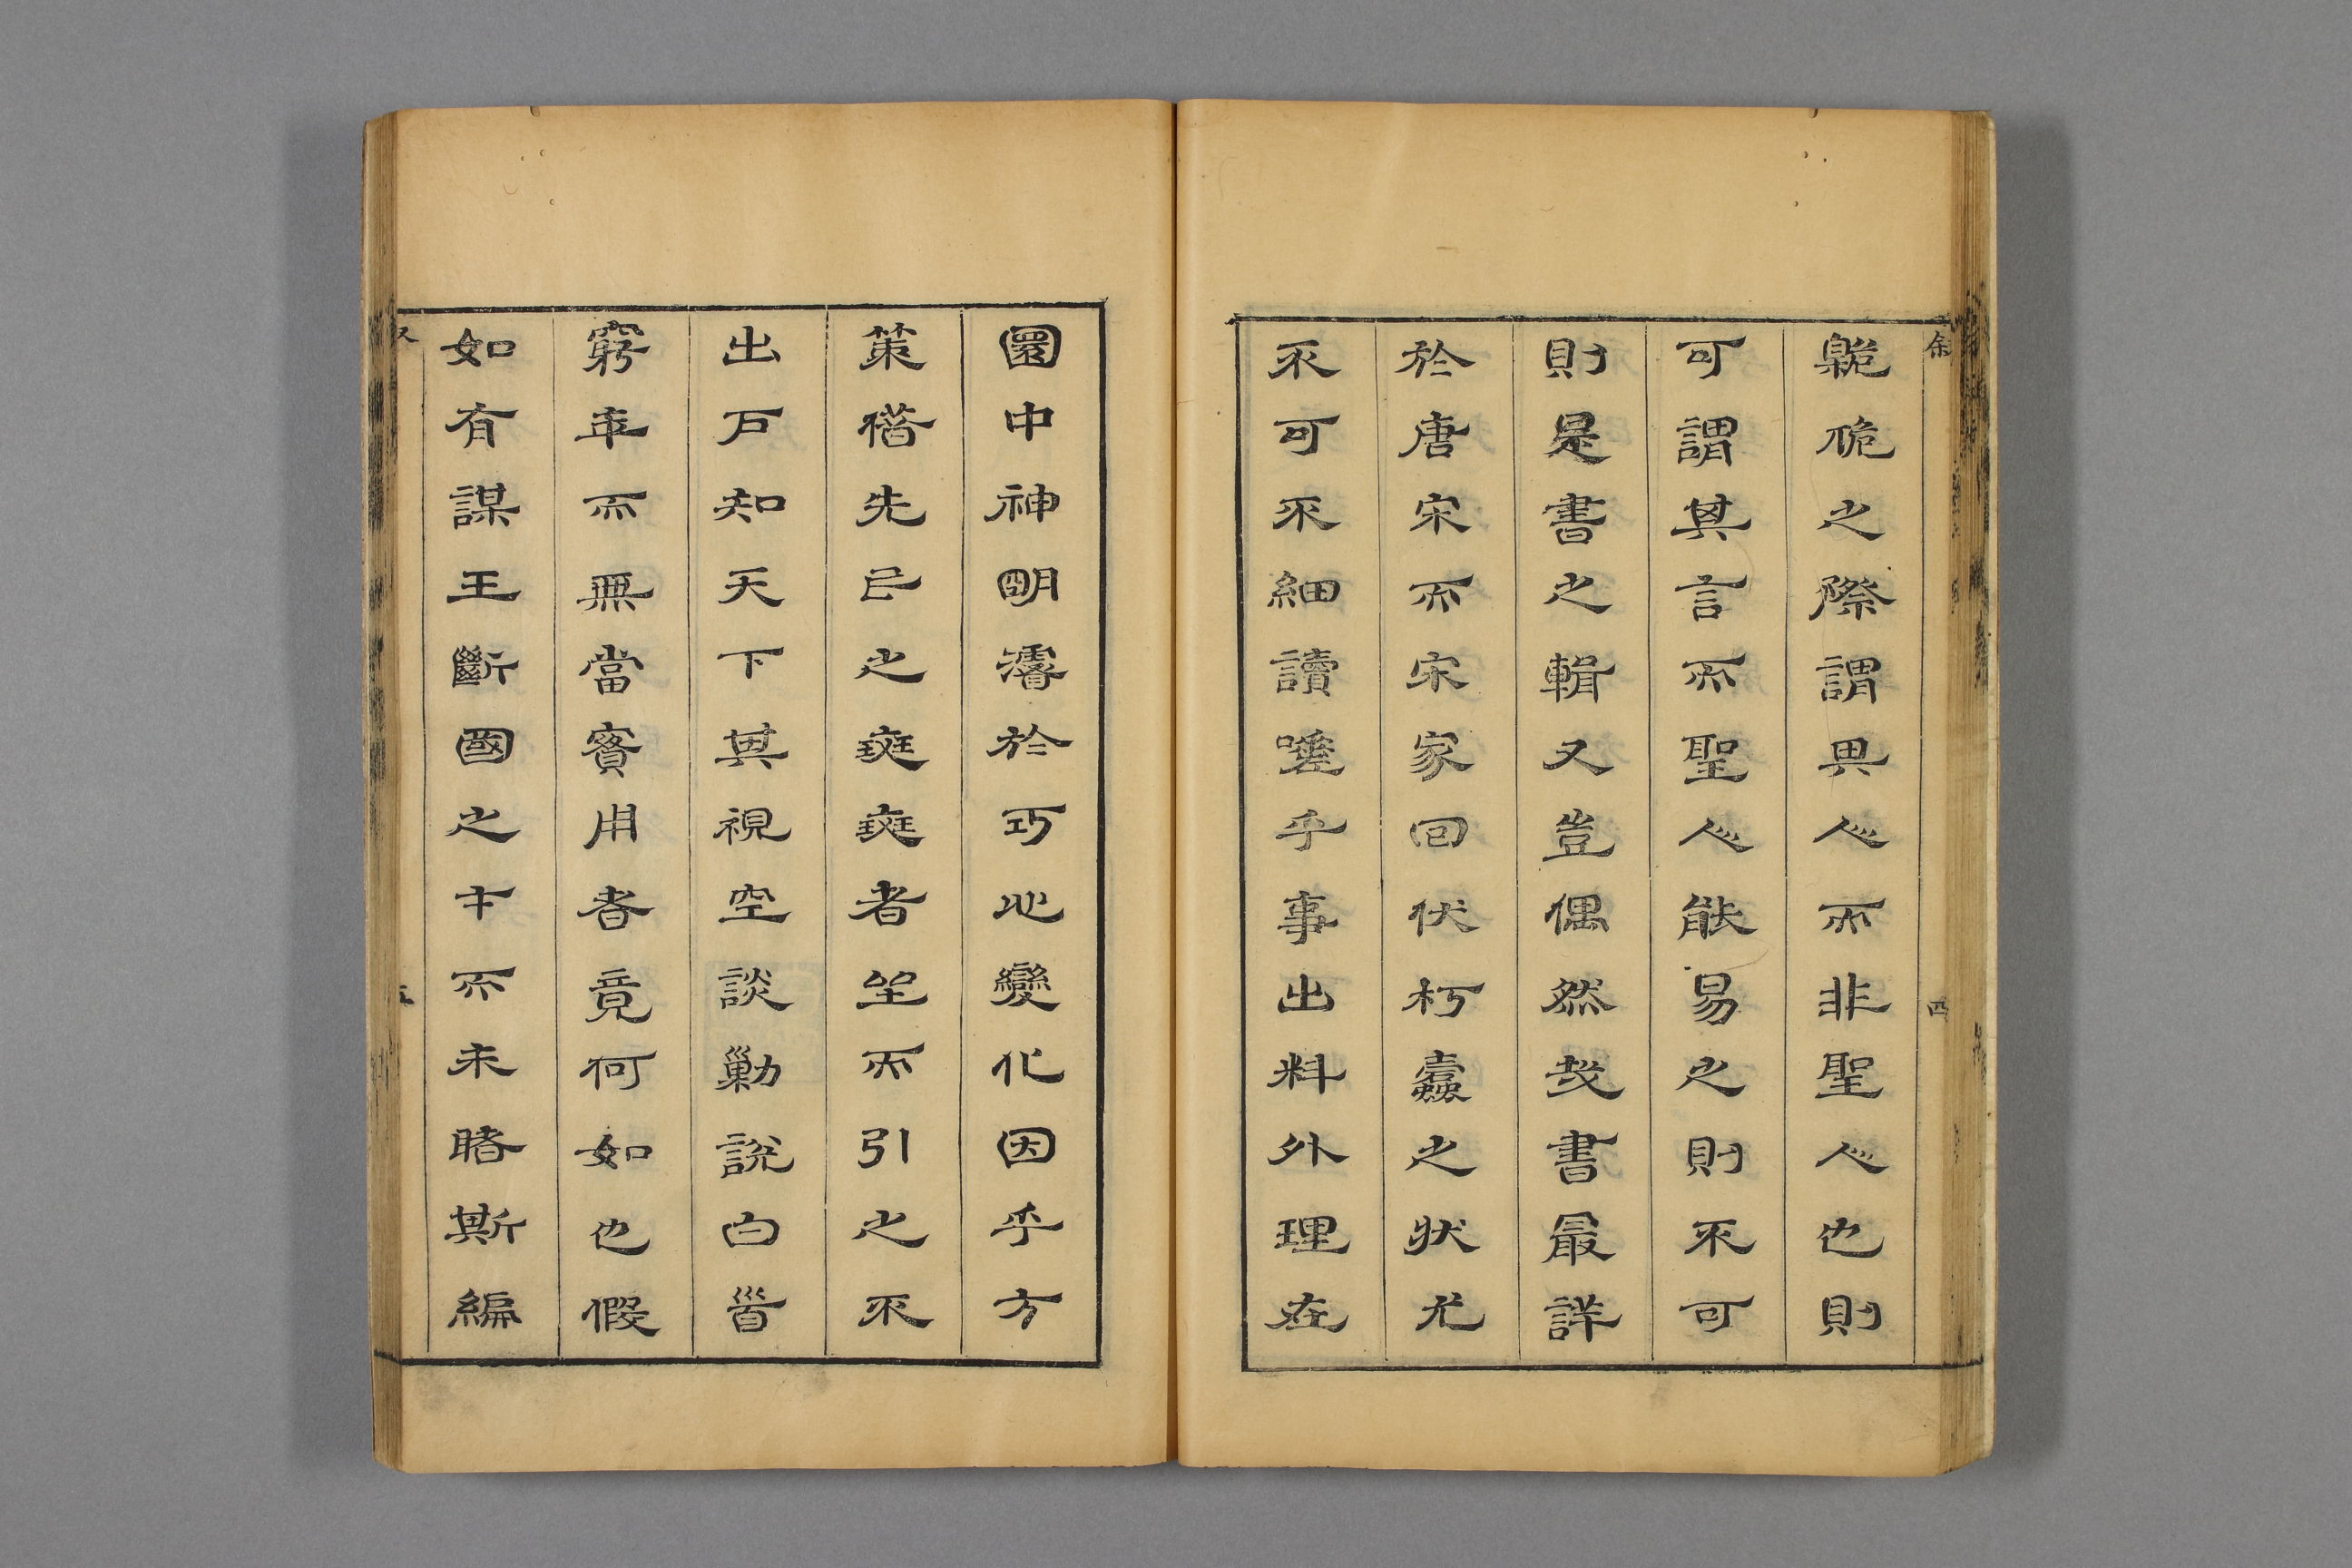 臲卼之際謂異人而非聖人也則
可謂其言而聖人能易之則不可
則是書之輯又豈偶然哉書最詳
於唐宋而宋家回伏朽蠧之狀尤
不可不細讀嗟乎事出料外理在
圜中神明濬於巧心變化因乎方
策僭先已之莛莛者坐而引之不
出戶知天下其視空談勦說白首
窮年而無當實用者竟何如也假
如有謀王斷國之才而未睹斯編